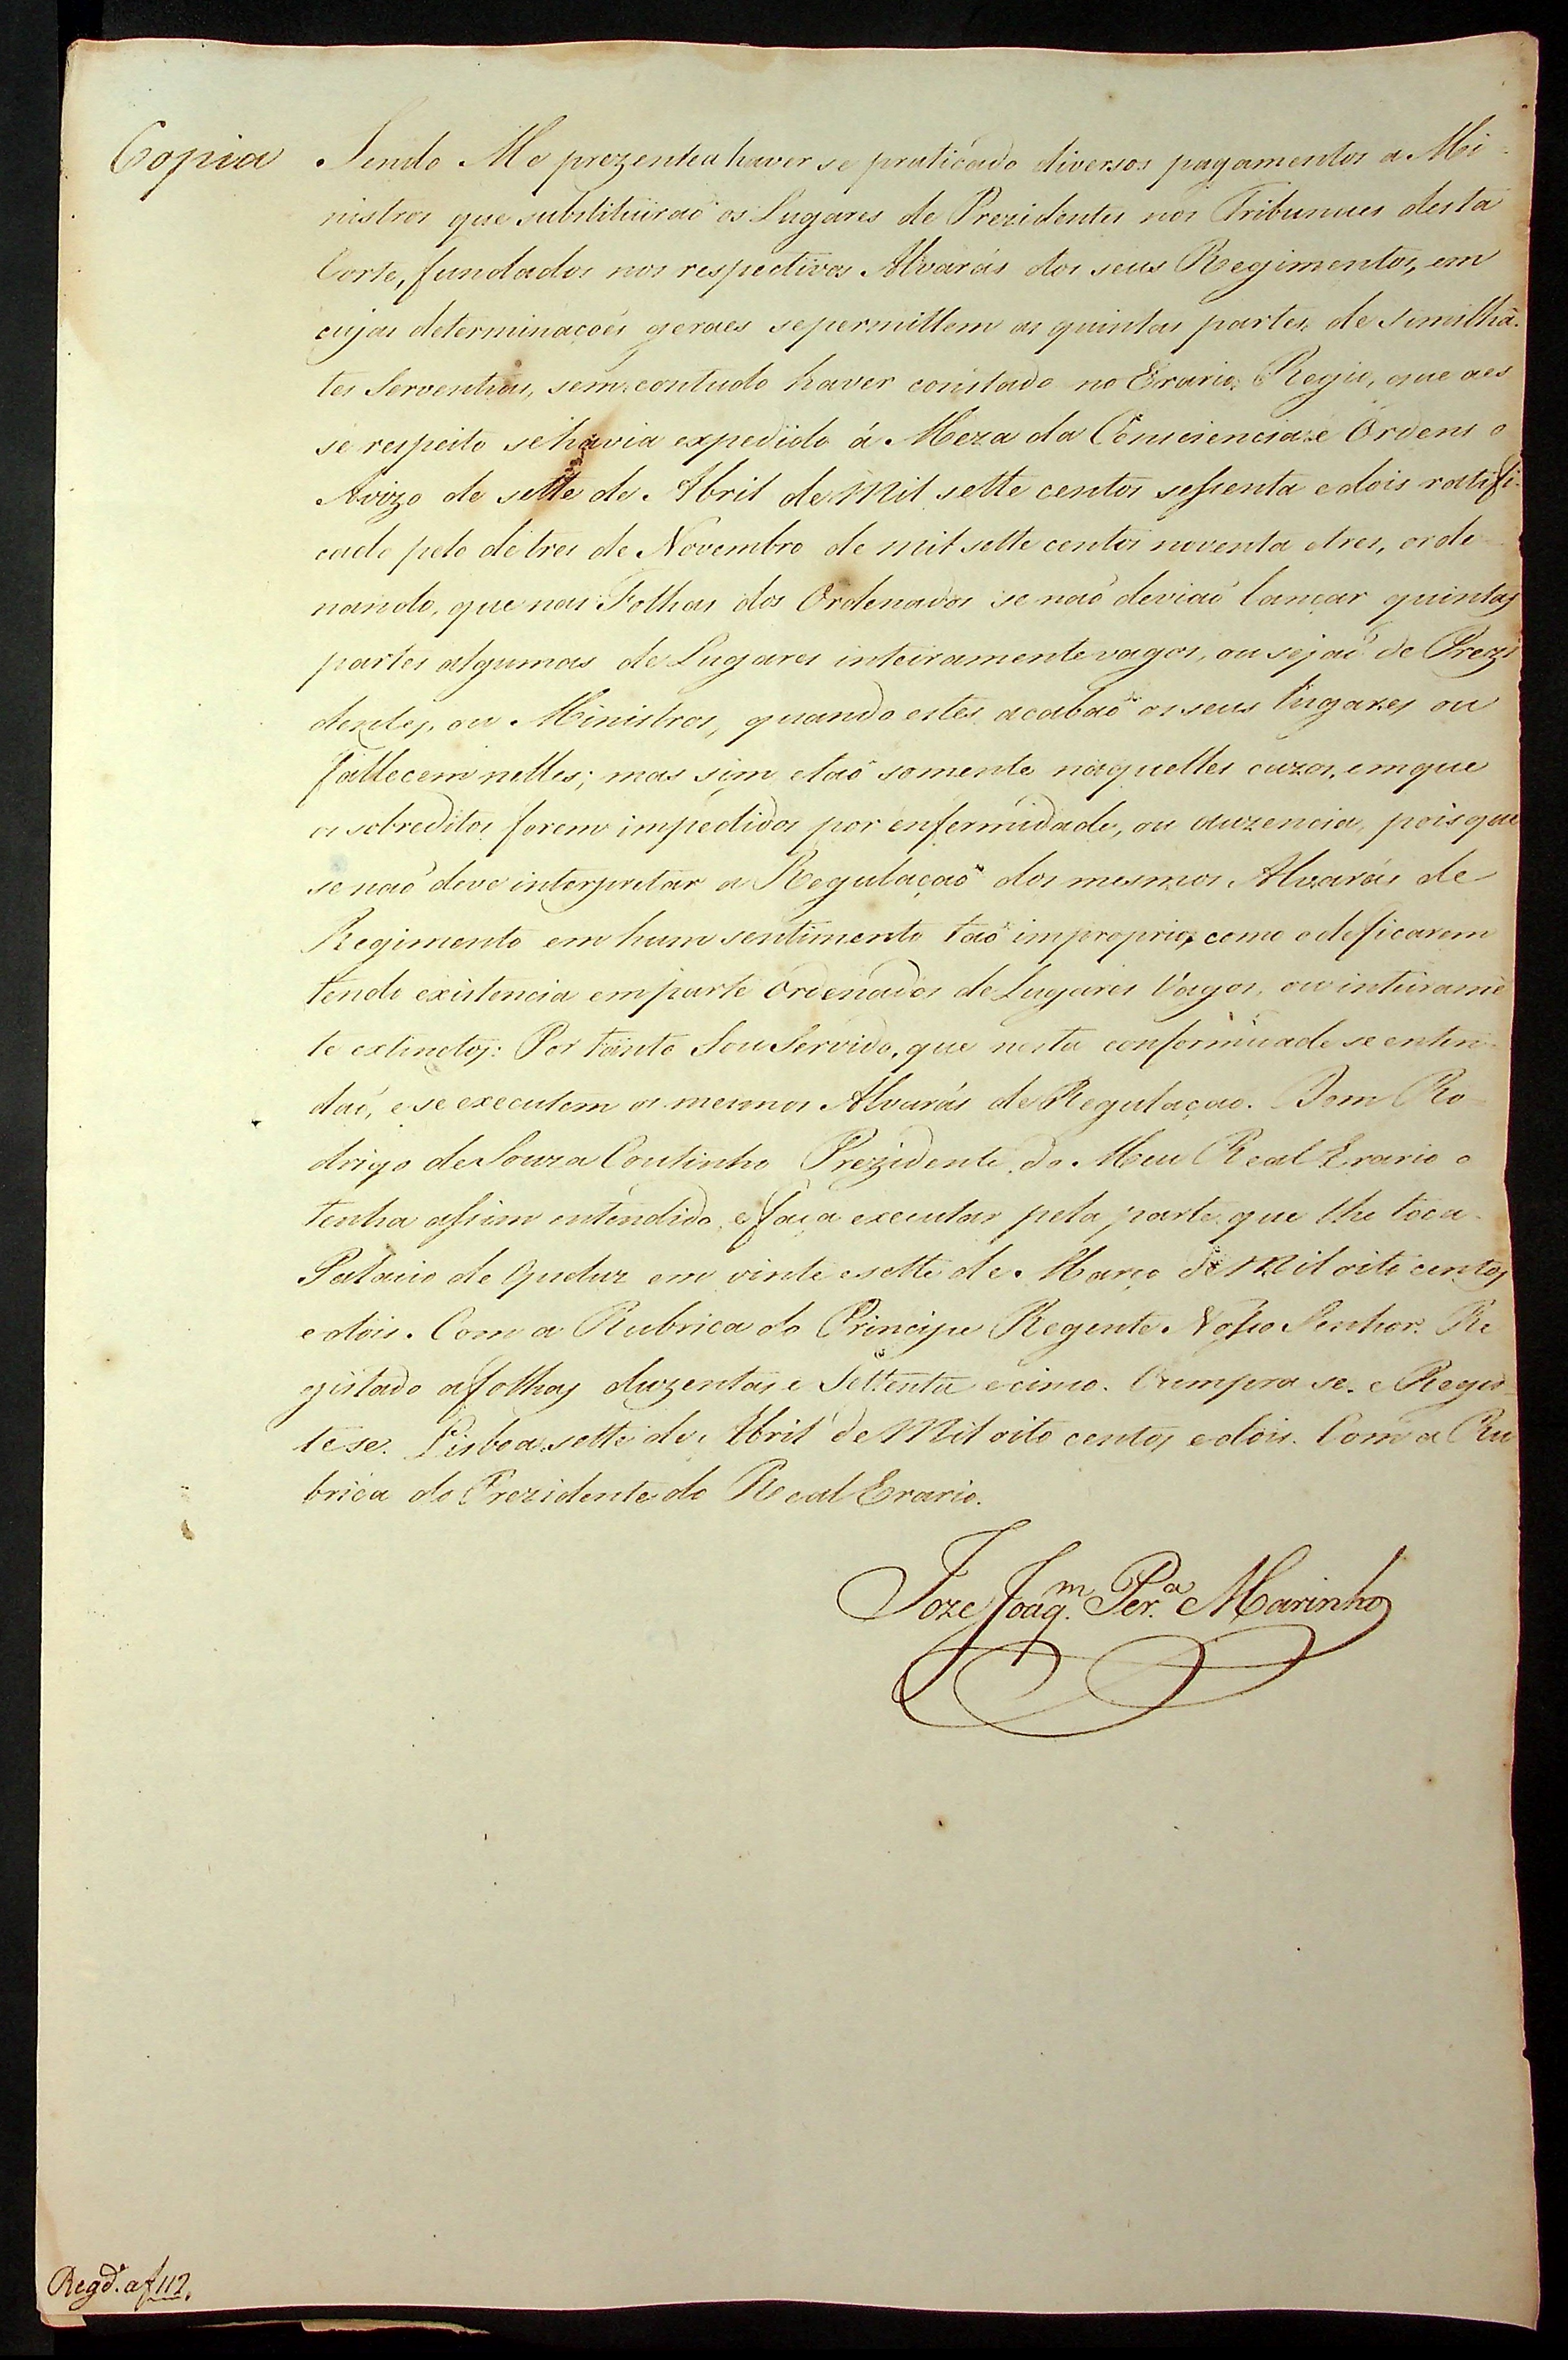 Copia Sendo Me prezente haver se praticado diversos pagamentos a Mi-
nistros que substituiraõ os Lugares de Prezidentes nos Tribunaes desta
Corte, fundados nos respectivos Alvarás dos seus Regimentos, em
cujas determinaçoēs geraes se permittem as quintas partes de similhã-
tes Serventias, sem comtudo haver constado no Erario Regio, que aes
se respeito se havia expedido á Meza da Consciencia e Ordens o
Avizo de sette de Abril de Mil sette centos sessenta e dois ratifi-
cado pelo de tres de Novembro de mil sette centos noventa e tres, orde-
nando, que nas Folhas dos Ordenados se naõ deviaõ lançar quintas
partes algumas de Lugares inteiramente vagos, ou sejaõ de Prezi
dentes, ou Ministros, quando estes acabaõ os seus lugares ou
fallecem nelles; mas sim e taõ somente naquelles cazos, em que
os sobreditos forem impedidos por enfermidade, ou auzencia, pois que
se naõ deve interpretar a Regulaçaõ dos mesmos Alvarás de
Regimento em hum sentimento taõ improprio, como o de ficarem
tendo existencia em parte ordenados de Lugares Vagos, ou inteiramē
te extinctos: Por tanto Sou Servido, que nesta conformidade se enten-
daõ, e se executem os mesmos Alvarás de Regulaçaõ. Dom Ro-
drigo de Souza Coutinho Prezidente do Meu Real Erario o
tenha assim entendido, e faça executar pela parte que lhe toca.
Palacio de Queluz em vinte e sette de Março de Mil oito centos
e dois. Com a Rubrica do Principe Regente Nosso Senhor. Re
gistado a folhas duzentas e settenta e cinco. Cumpra se, e Regis-
te se. Lisboa sette de Abril de Mil oito centos e dois. Com a Ru
brica do Prezidente do Real Erario.
Joze Joaq.m Per.a Marinho
Regd.o a f 112.